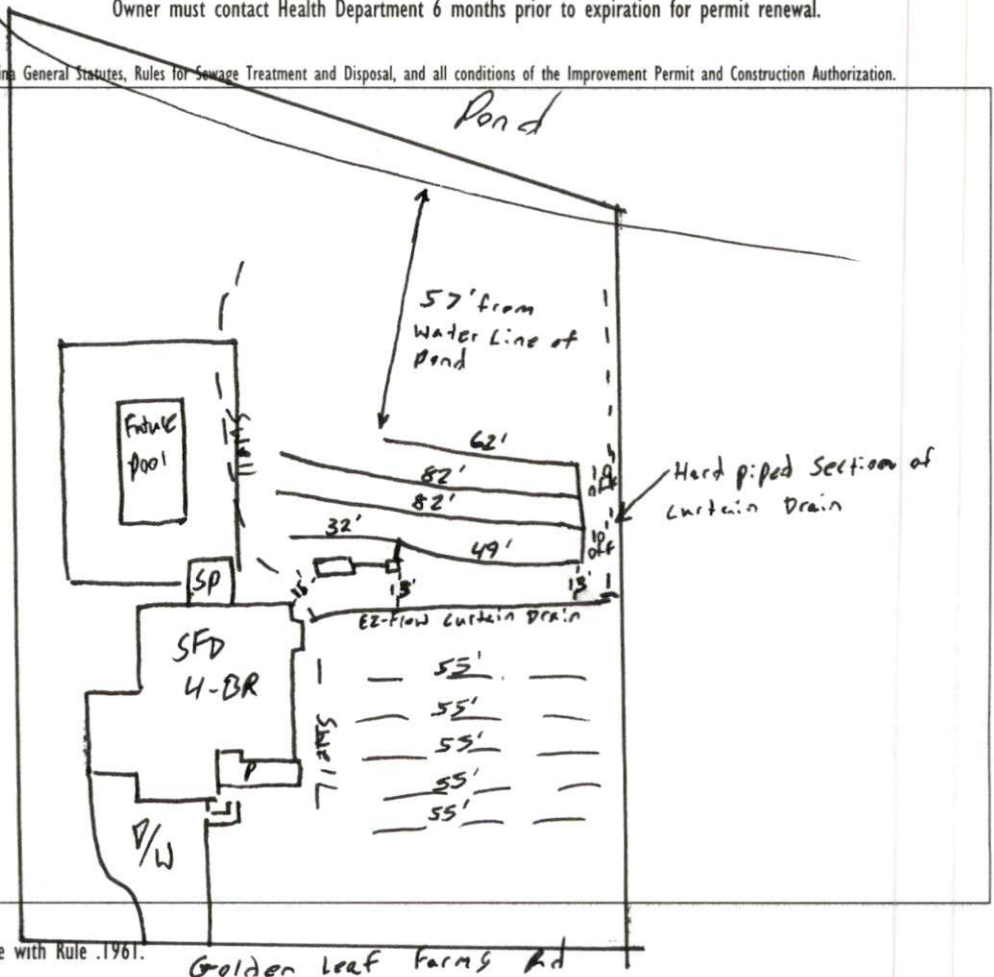 Owner must contact Health Department 6 months prior to expiration for permit renewal.
ina General Statutes, Rules for Sewage Treatment and Disposal, and all conditions of the Improvement Permit and Construction Authorization.
Pond
57' from
Water Line of
Pond
Future
Pool
62'
82'
82'
32'
49'
10'
off
10'
off
Hard piped Section of
Curtain Drain
SP
15'
13'
13'
EZ-Flow Curtain Drain
SFD
4-BR
55'
55'
55'
55'
55'
P
D/W
e with Rule .1961.
Golden Leaf Farms Rd